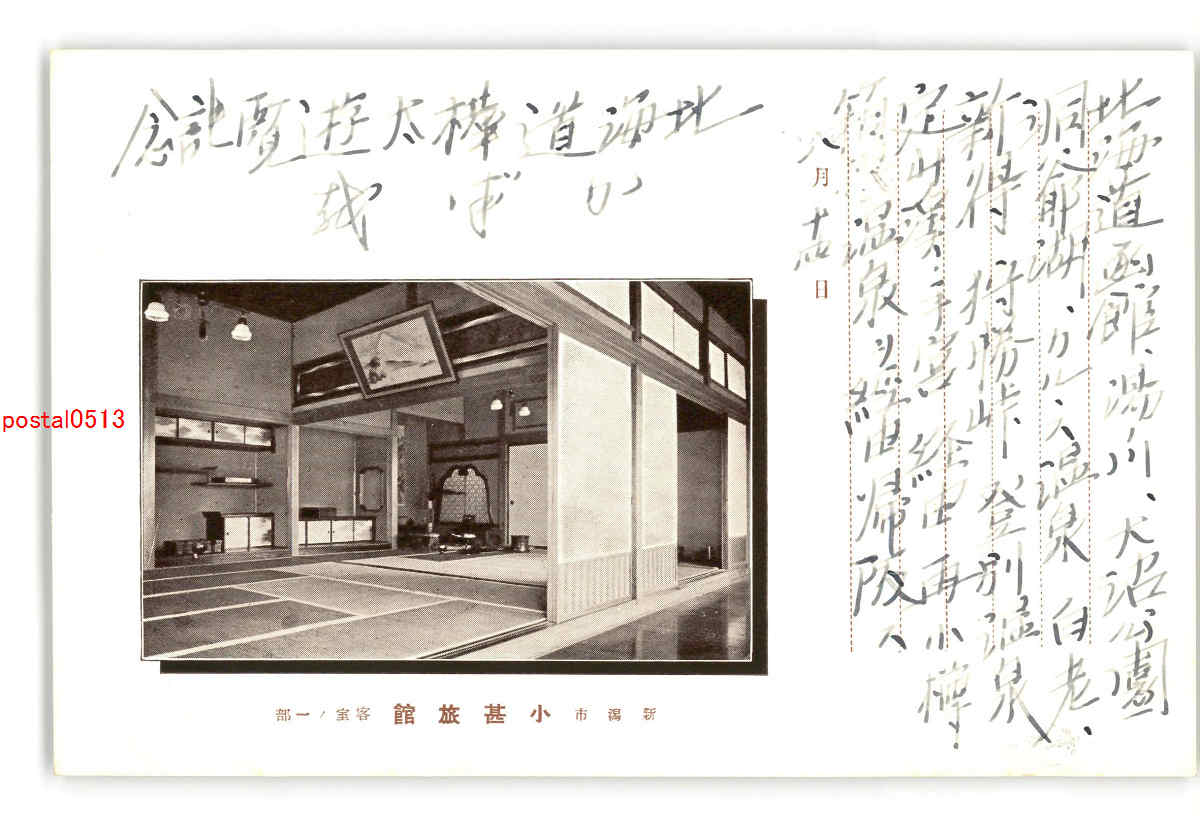 北海道函館、湯川、大沼公園
洞爺湖、カルヽス温泉 白老、
新得 狩勝峠 登別温泉、
定山渓、手宮 経由 再小樽
温泉ヲ経由帰阪ス
八月十四日
北海道樺太遊覧記念
新潟市 小甚旅館 客室ノ一部
postal0513